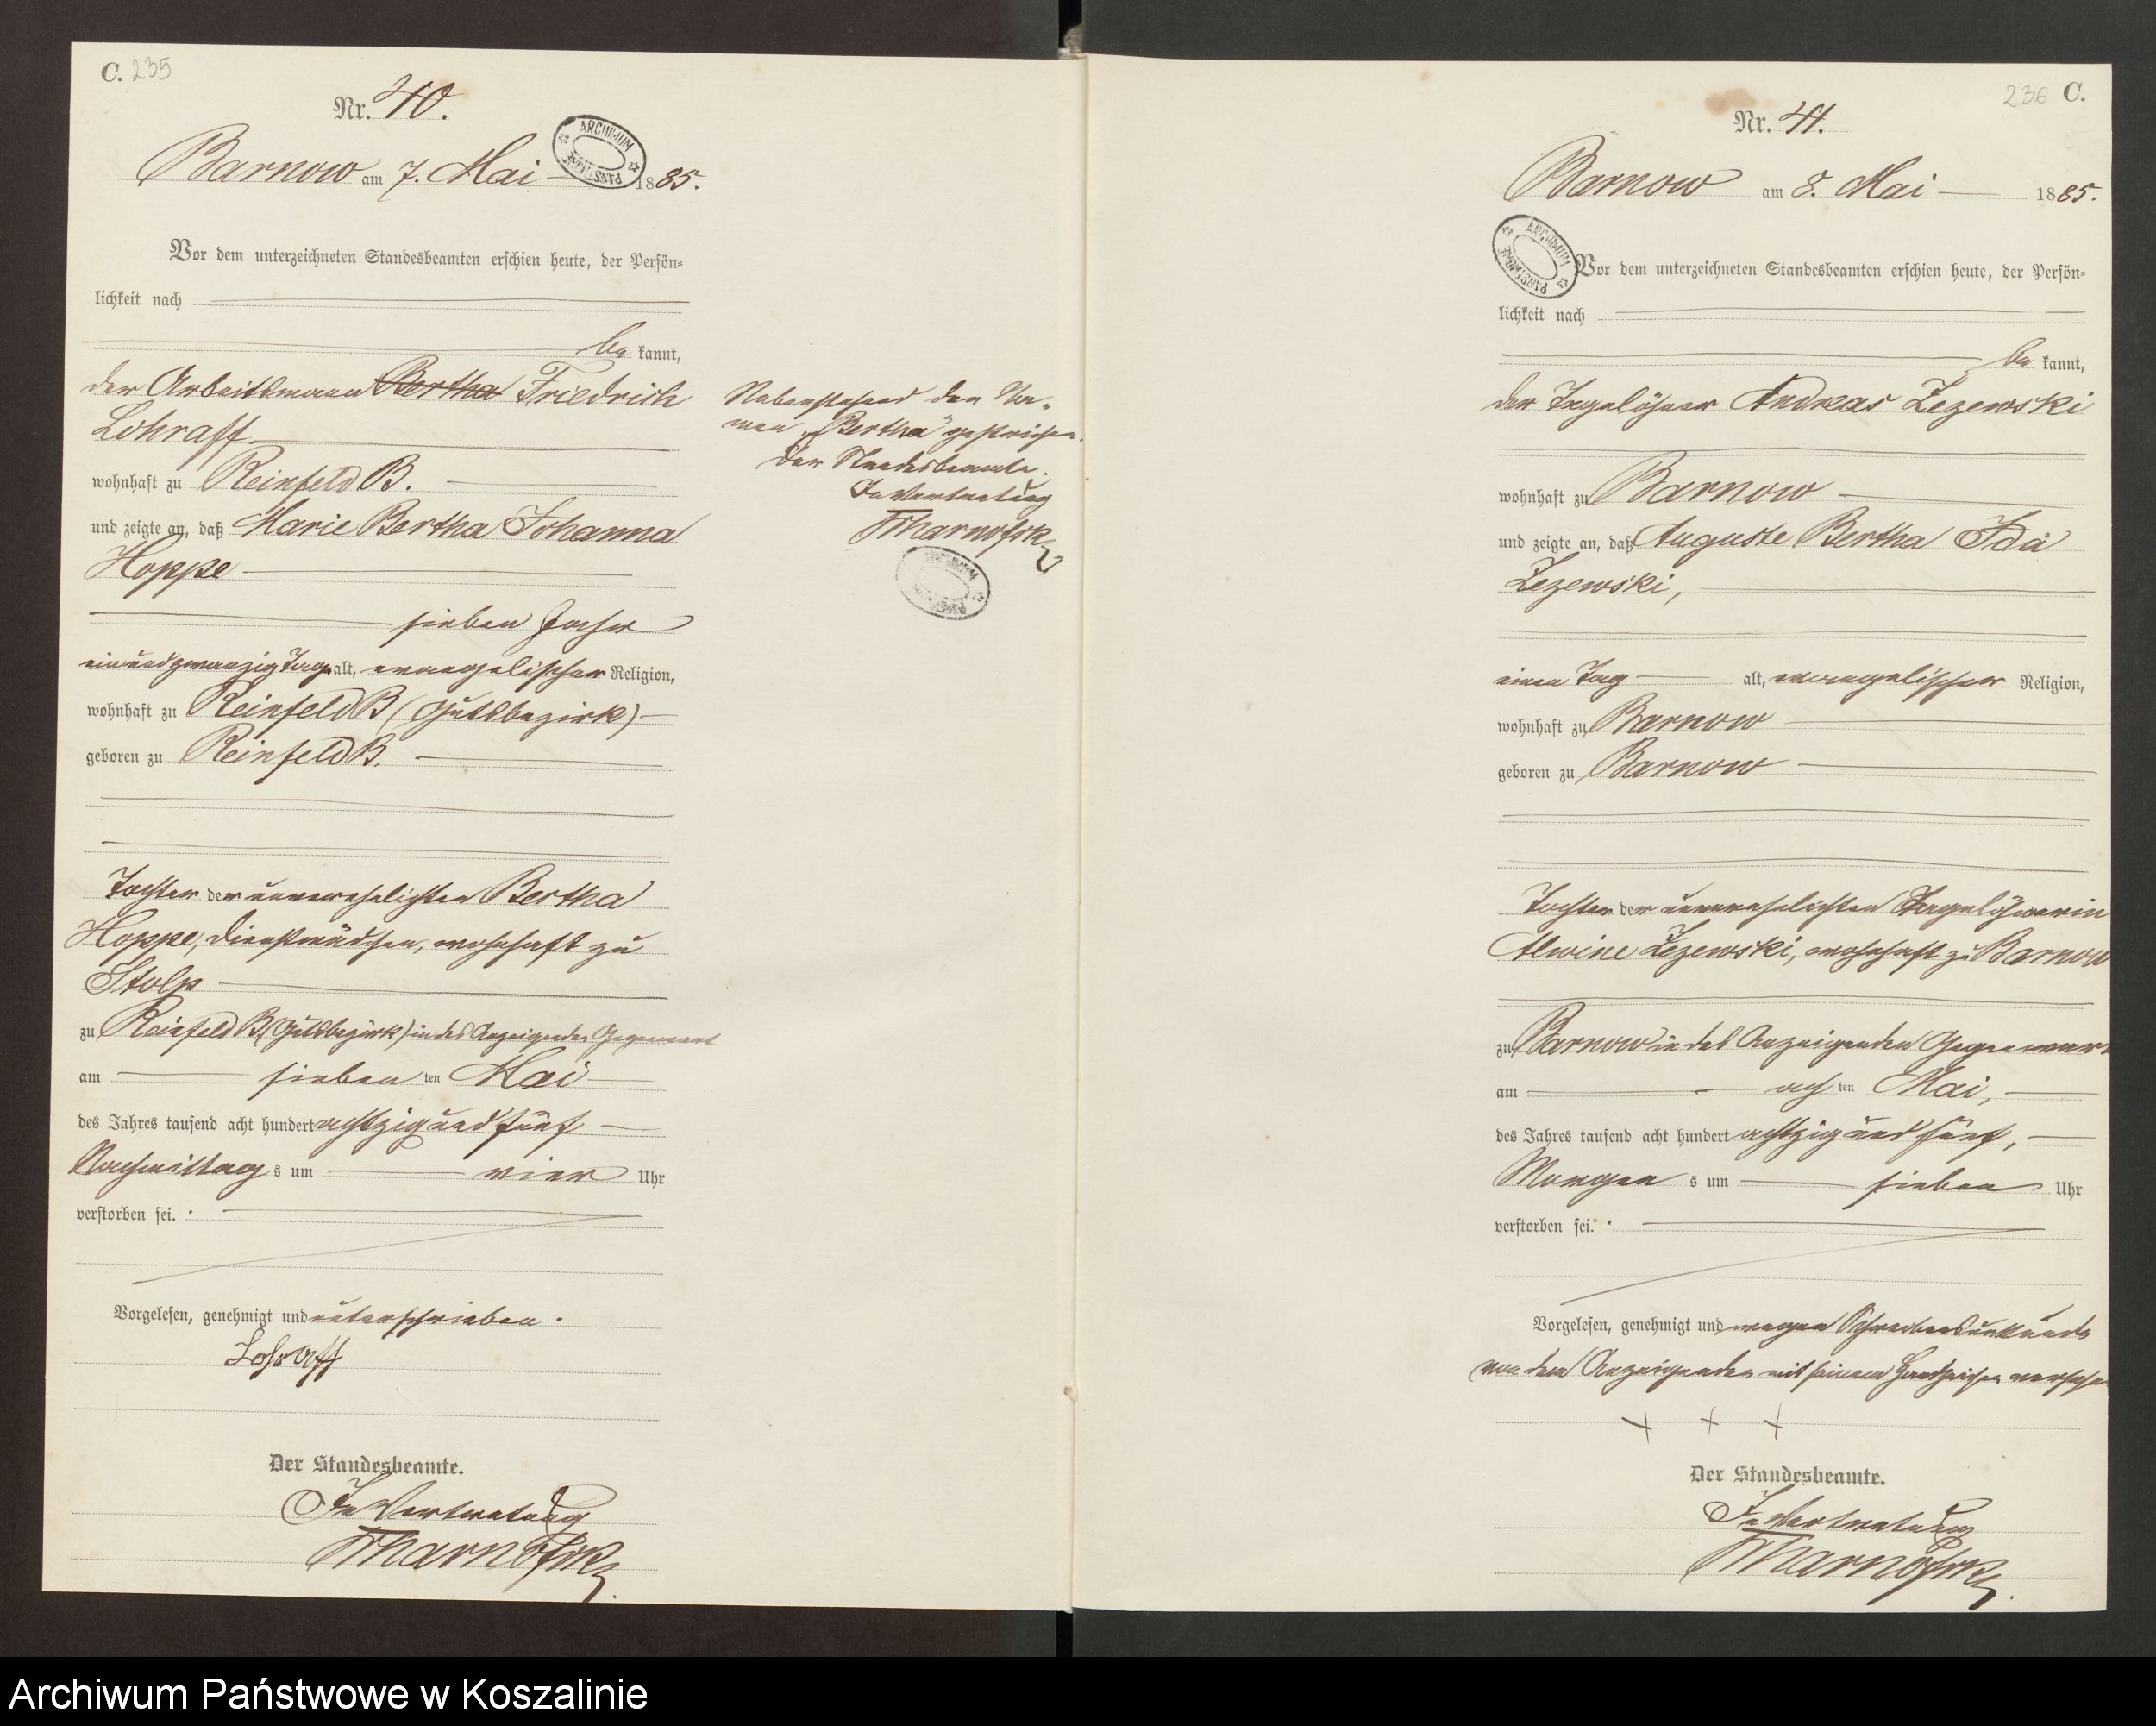 C. 235
Nr. 40.
ARCHIWUM PAŃSTWOWE
Barnow am 7. Mai 1885.
Vor dem unterzeichneten Standesbeamten erschien heute, der Persön-
lichkeit nach
be kannt,
der Arbeitsmann Bertha Friedrich
Lohraff
wohnhaft zu Reinfeld B.
und zeigte an, daß Marie Bertha Johanna
Hoppe
sieben Jahr
einundzwanzig Tage alt, evangelischer Religion,
wohnhaft zu Reinfeld B (Gutsbezirk)
geboren zu Reinfeld B.
Tochter der unverehelichten Bertha
Hoppe, Dienstmädchen, wohnhaft zu
Stolp
zu Reinfeld B (Gutsbezirk) in des Anzeigenden Gegenwart
am sieben ten Mai
des Jahres tausend acht hundert achtzig und fünf
Nachmittag s um vier Uhr
verstorben sei.
Vorgelesen, genehmigt und unterschrieben.
Lohraff
Der Standesbeamte.
In Vertretung
Nebenstehend den Na-
men „Bertha" gestrichen.
Der Standesbeamte.
In Vertretung
236 C.
Nr. 41.
Barnow am 8. Mai 1885.
ARCHIWUM PAŃSTWOWE
Vor dem unterzeichneten Standesbeamten erschien heute, der Persön-
lichkeit nach
be kannt,
der Tagelöhner Andreas Zezewski
wohnhaft zu Barnow
und zeigte an, daß Auguste Bertha Ida
Zezewski,
einen Tag alt, evangelischer Religion,
wohnhaft zu Barnow
geboren zu Barnow
Tochter der unverehelichten Tagelöhnerin
Alwine Zezewski, wohnhaft zu Barnow
zu Barnow in des Anzeigenden Gegenwart
am ach ten Mai,
des Jahres tausend acht hundert achtzig und fünf,
Morgen s um sieben Uhr
verstorben sei.
Vorgelesen, genehmigt und wegen Schreibensunkunde
von dem Anzeigenden mit seinem Handzeichen versehen
+ + +
Der Standesbeamte.
In Vertretung
Archiwum Państwowe w Koszalinie